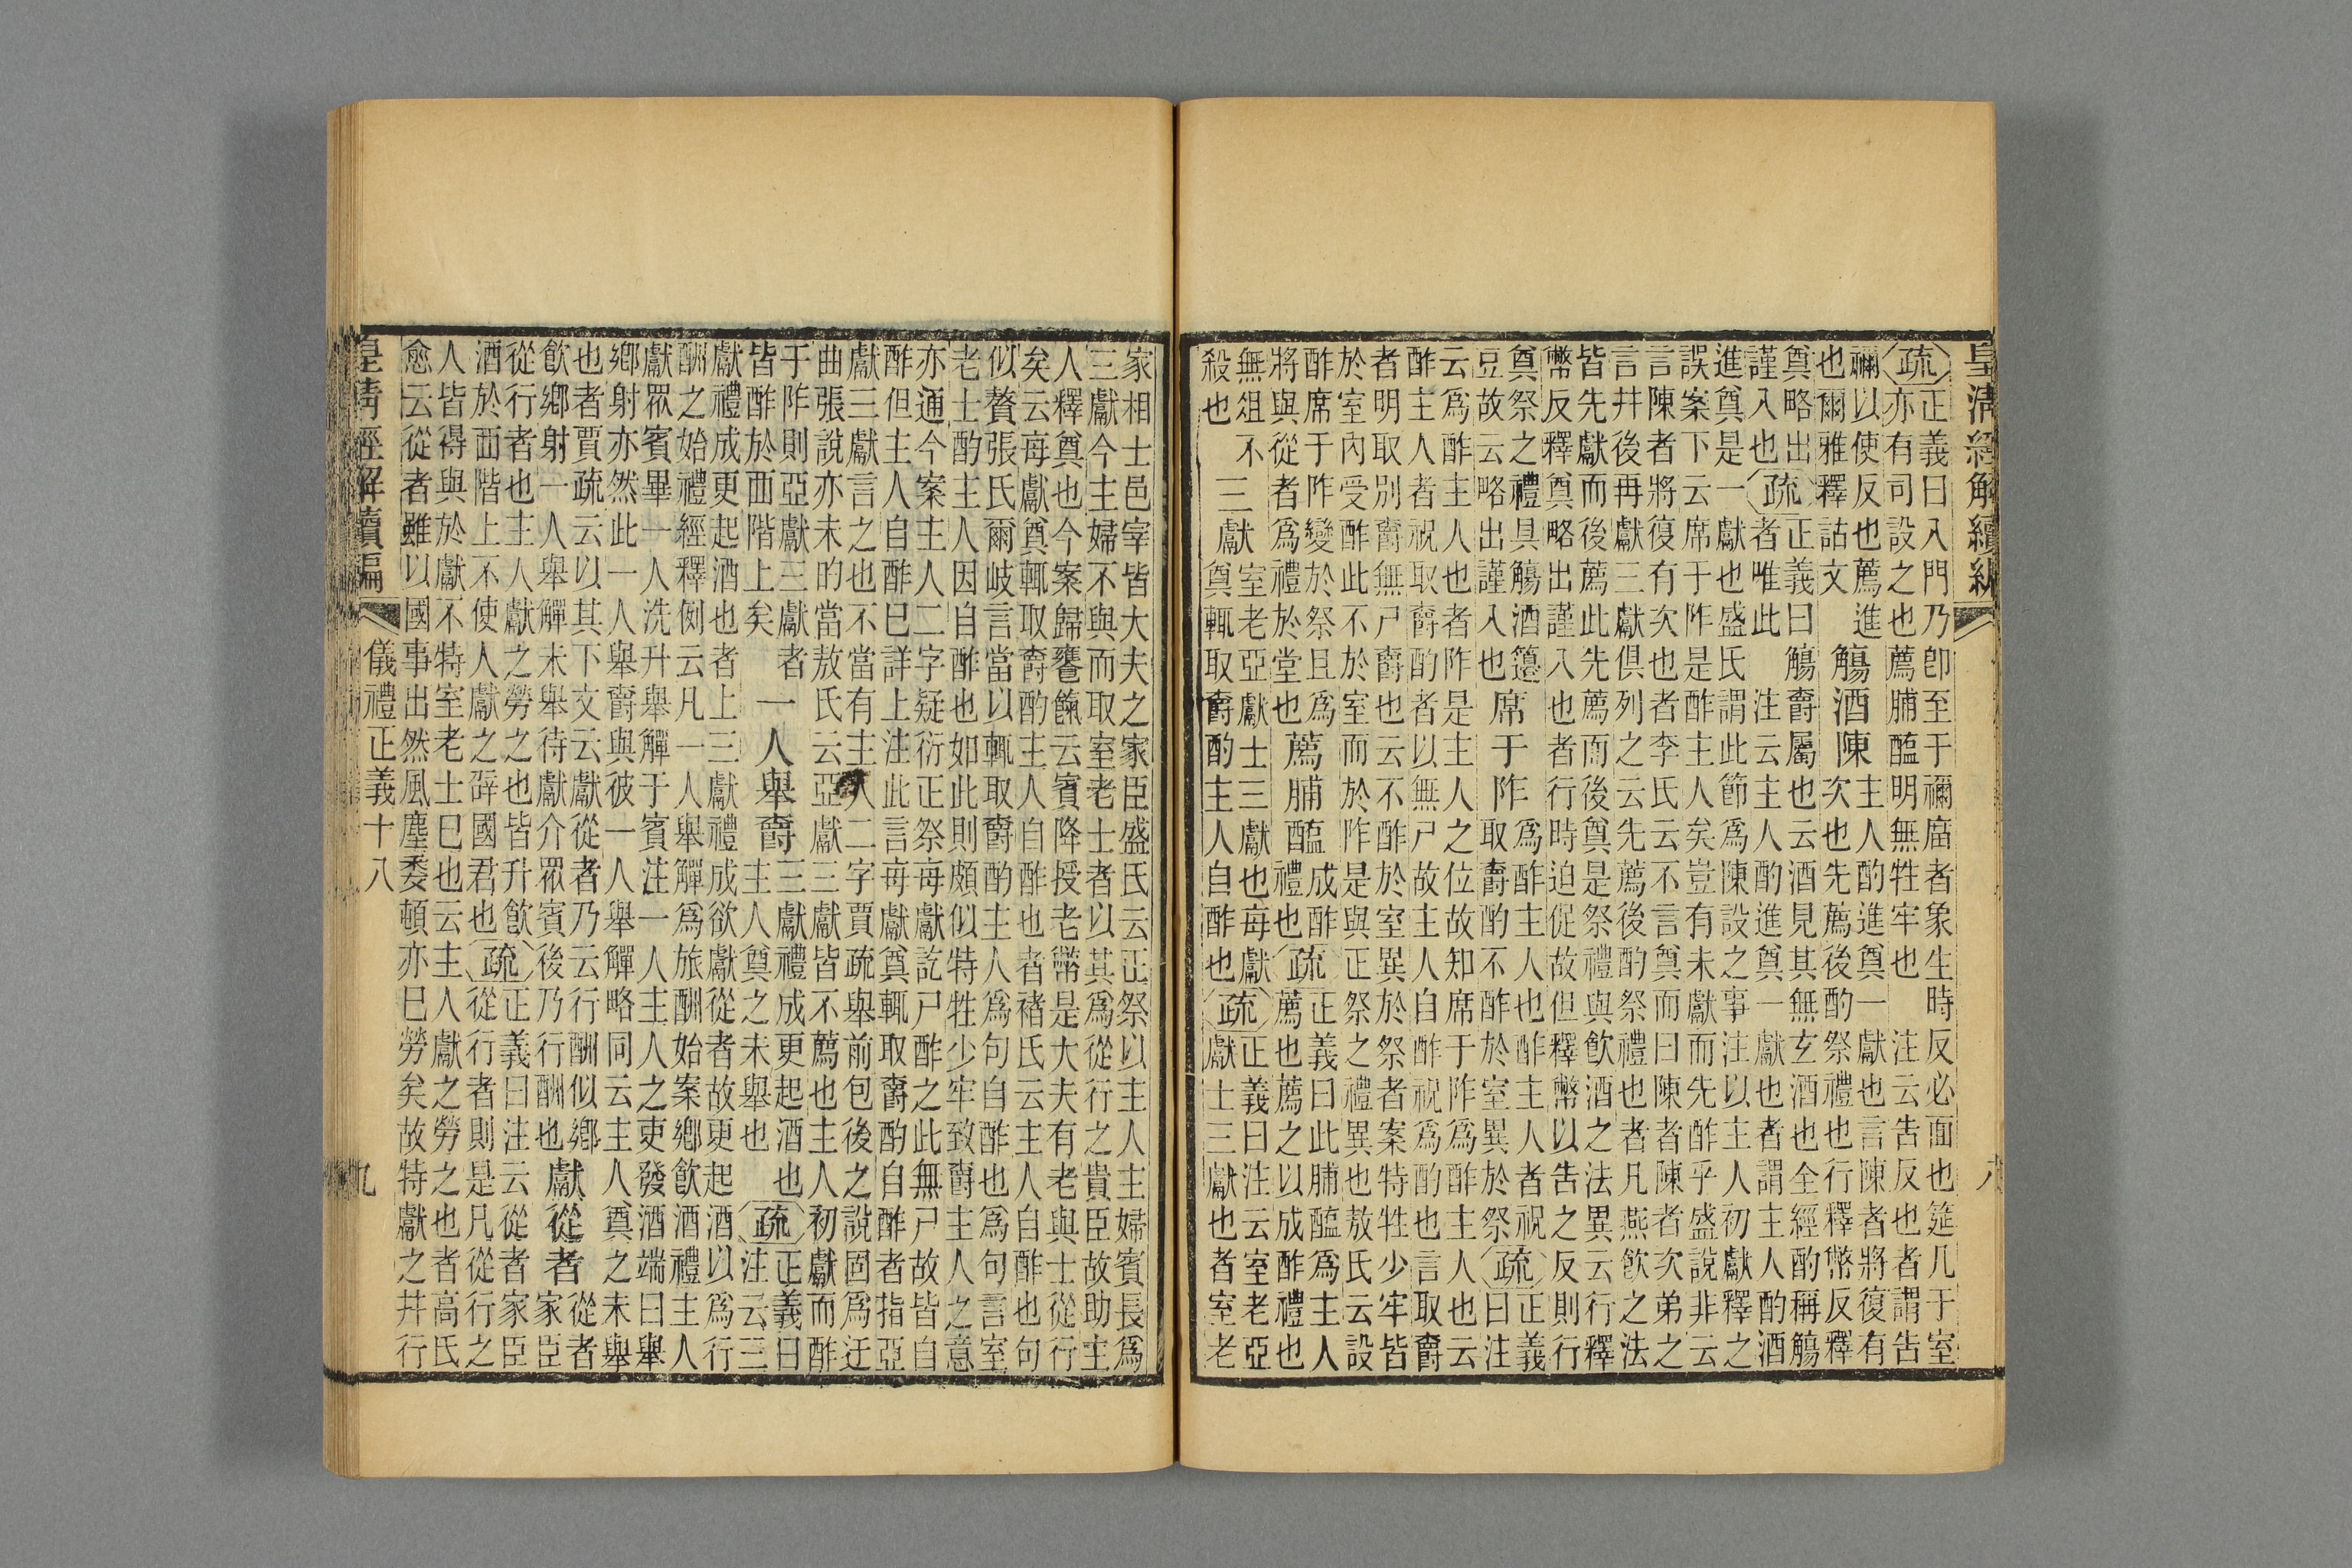 皇清經解續編
八
疏 正義曰入門乃卽至于禰廟者象生時反必面也筵几于室
亦有司設之也薦脯醢明無牲牢也 注云告反也者謂告
禰以使反也薦進
也爾雅釋詁文
觴酒陳
主人酌進奠一獻也言陳者將復有
次也先薦後酌祭禮也行釋幣反釋
奠略出
謹入也
疏 正義曰觴爵屬也云酒見其無玄酒也全經酌稱觴酒
者唯此 注云主人酌進奠一獻也者謂主人酌酒
進奠是一獻也盛氏謂此節爲陳設之事注以主人初獻釋之
誤案下云席于阼是酢主人矣豈有未獻而先酢乎盛說非云
言陳者將復有次也者李氏云不言奠而曰陳者陳者次弟之
言幷後再獻三獻俱列之云先薦後酌祭禮也者凡燕飮之法
皆先獻而後薦此先薦而後奠是祭禮與飮酒之法異云行釋
幣反釋奠略出謹入也者行時迫促故但釋幣以告之反則行
奠祭之禮具觴酒籩
豆故云略出謹入也
席于阼
爲酢主人也酢主人者祝
取爵酌不酢於室異於祭
疏 正義
曰注
云爲酢主人也者阼是主人之位故知席于阼爲酢主人也云
酢主人者祝取爵酌者以無尸故主人自酢祝爲酌也言取爵
者明取別爵無尸爵也云不酢於室異於祭者案特牲少牢皆
於室內受酢此不於室而於阼是與正祭之禮異也敖氏云設
酢席于阼變於祭且爲
將與從者爲禮於堂也
薦脯醢
成酢
禮也
疏 正義曰此脯醢爲主人
薦也薦之以成酢禮也
無俎不
殺也
三獻
室老亞獻士三獻也每獻
奠輒取爵酌主人自酢也
疏 正義曰注云室老亞
獻士三獻也者室老
家相士邑宰皆大夫之家臣盛氏云正祭以主人主婦賓長爲
三獻今主婦不與而取室老士者以其爲從行之貴臣故助主
人釋奠也今案歸饔餼云賓降授老幣是大夫有老與士從行
矣云每獻奠輒取爵酌主人自酢也者褚氏云主人自酢也句
似贅張氏爾岐言當以輒取爵酌主人爲句自酢也爲句言室
老士酌主人因自酢也如此則頗似特牲少牢致爵主人之意
亦通今案主人二字疑衍正祭每獻訖尸酢之此無尸故皆自
酢但主人自酢已詳上注此言每獻奠輒取爵酌自酢者指亞
獻三獻言之也不當有主人二字賈疏舉前包後之說固爲迂
曲張說亦未的當敖氏云亞獻三獻皆不薦也主人初獻而酢
于阼則亞獻三獻者
皆酢於西階上矣
一人舉爵
三獻禮成更起酒也
主人奠之未舉也
疏 正義曰
注云三
獻禮成更起酒也者上三獻禮成欲獻從者故更起酒以爲行
酬之始禮經釋例云凡一人舉觶爲旅酬始案鄉飮酒禮主人
獻眾賓畢一人洗升舉觶于賓注一人主人之吏發酒端曰舉
鄉射亦然此一人舉爵與彼一人舉觶略同云主人奠之未舉
也者賈疏云以其下文云獻從者乃云行酬似鄉
飮鄉射一人舉觶未舉待獻介眾賓後乃行酬也
獻從者
從者
家臣
從行者也主人獻之勞之也皆升飮
酒於西階上不使人獻之辟國君也
疏 正義曰注云從者家臣
從行者則是凡從行之
人皆得與於獻不特室老士已也云主人獻之勞之也者高氏
愈云從者雖以國事出然風塵委頓亦已勞矣故特獻之幷行
皇清經解續編
儀禮正義十八
九